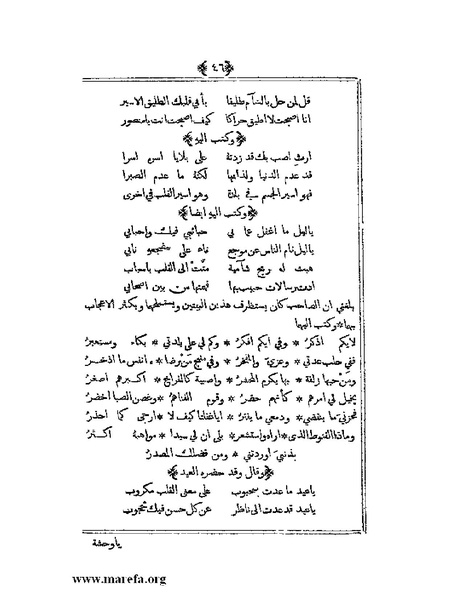 ﴿ ٤٦ ﴾
قل لمن حل بالشآم طليقا بأبي قلبك الطليق الاسير
انا اصبحت لا اطيق حراكا كيف اصبحت انت يا منصور
﴿ وكتب اليه ﴾
ارث لصب بك قد زدته على بلايا اسره اسرا
قد عدم الدنيا ولذاتها لكنه ما عدم الصبرا
فهو اسير الجسم في بلدة وهو اسير القلب في اخرى
﴿ وكتب اليه ايضا ﴾
ياليل ما اغفل عما بي حبائبي فيك واحبابي
ياليل نام الناس عن موجع ناء على مضجعه نابي
هبت له ريح شآمية متت الى القلب باسباب
ادت رسالات حبيب بها فهمتها من بين اصحابي
بلغني ان الصاحب كان يستظرف هذين البيتين ويستملحهما ويكثر الاعجاب
بهما * وكتب اليهما
لايكم اذكر * وفي ايكم افكر * وكم لي على بلدتي * بكاء ومستعبر
ففي حلب عدتي * وعزي والمفخر * وفي منبج من رضاه * انفس ما اذخر
ومن حبها زلفة * بها يكرم المحشر * واصبية كالفراخ * اكبرهم اصغر
يخيل لي امرهم * كأنهم حضر * وقوم الفناهم * وغصن الصبا اخضر
فحزني ما ينقضي * ودمعي ما يفتر *
وماذا القنوط الذى * اراه واستشعر * بلى ان لي سيدا * مواهبه اكثر
بذنبي اوردتني * ومن فضلك المصدر
﴿ وقال وقد حضره العيد ﴾
يا عيد ما عدت بمحبوب على معنى القلب مكروب
يا عيد قد عدت الى ناظر عن كل حسن فيك محجوب
يا وحشة
www.marefa.org